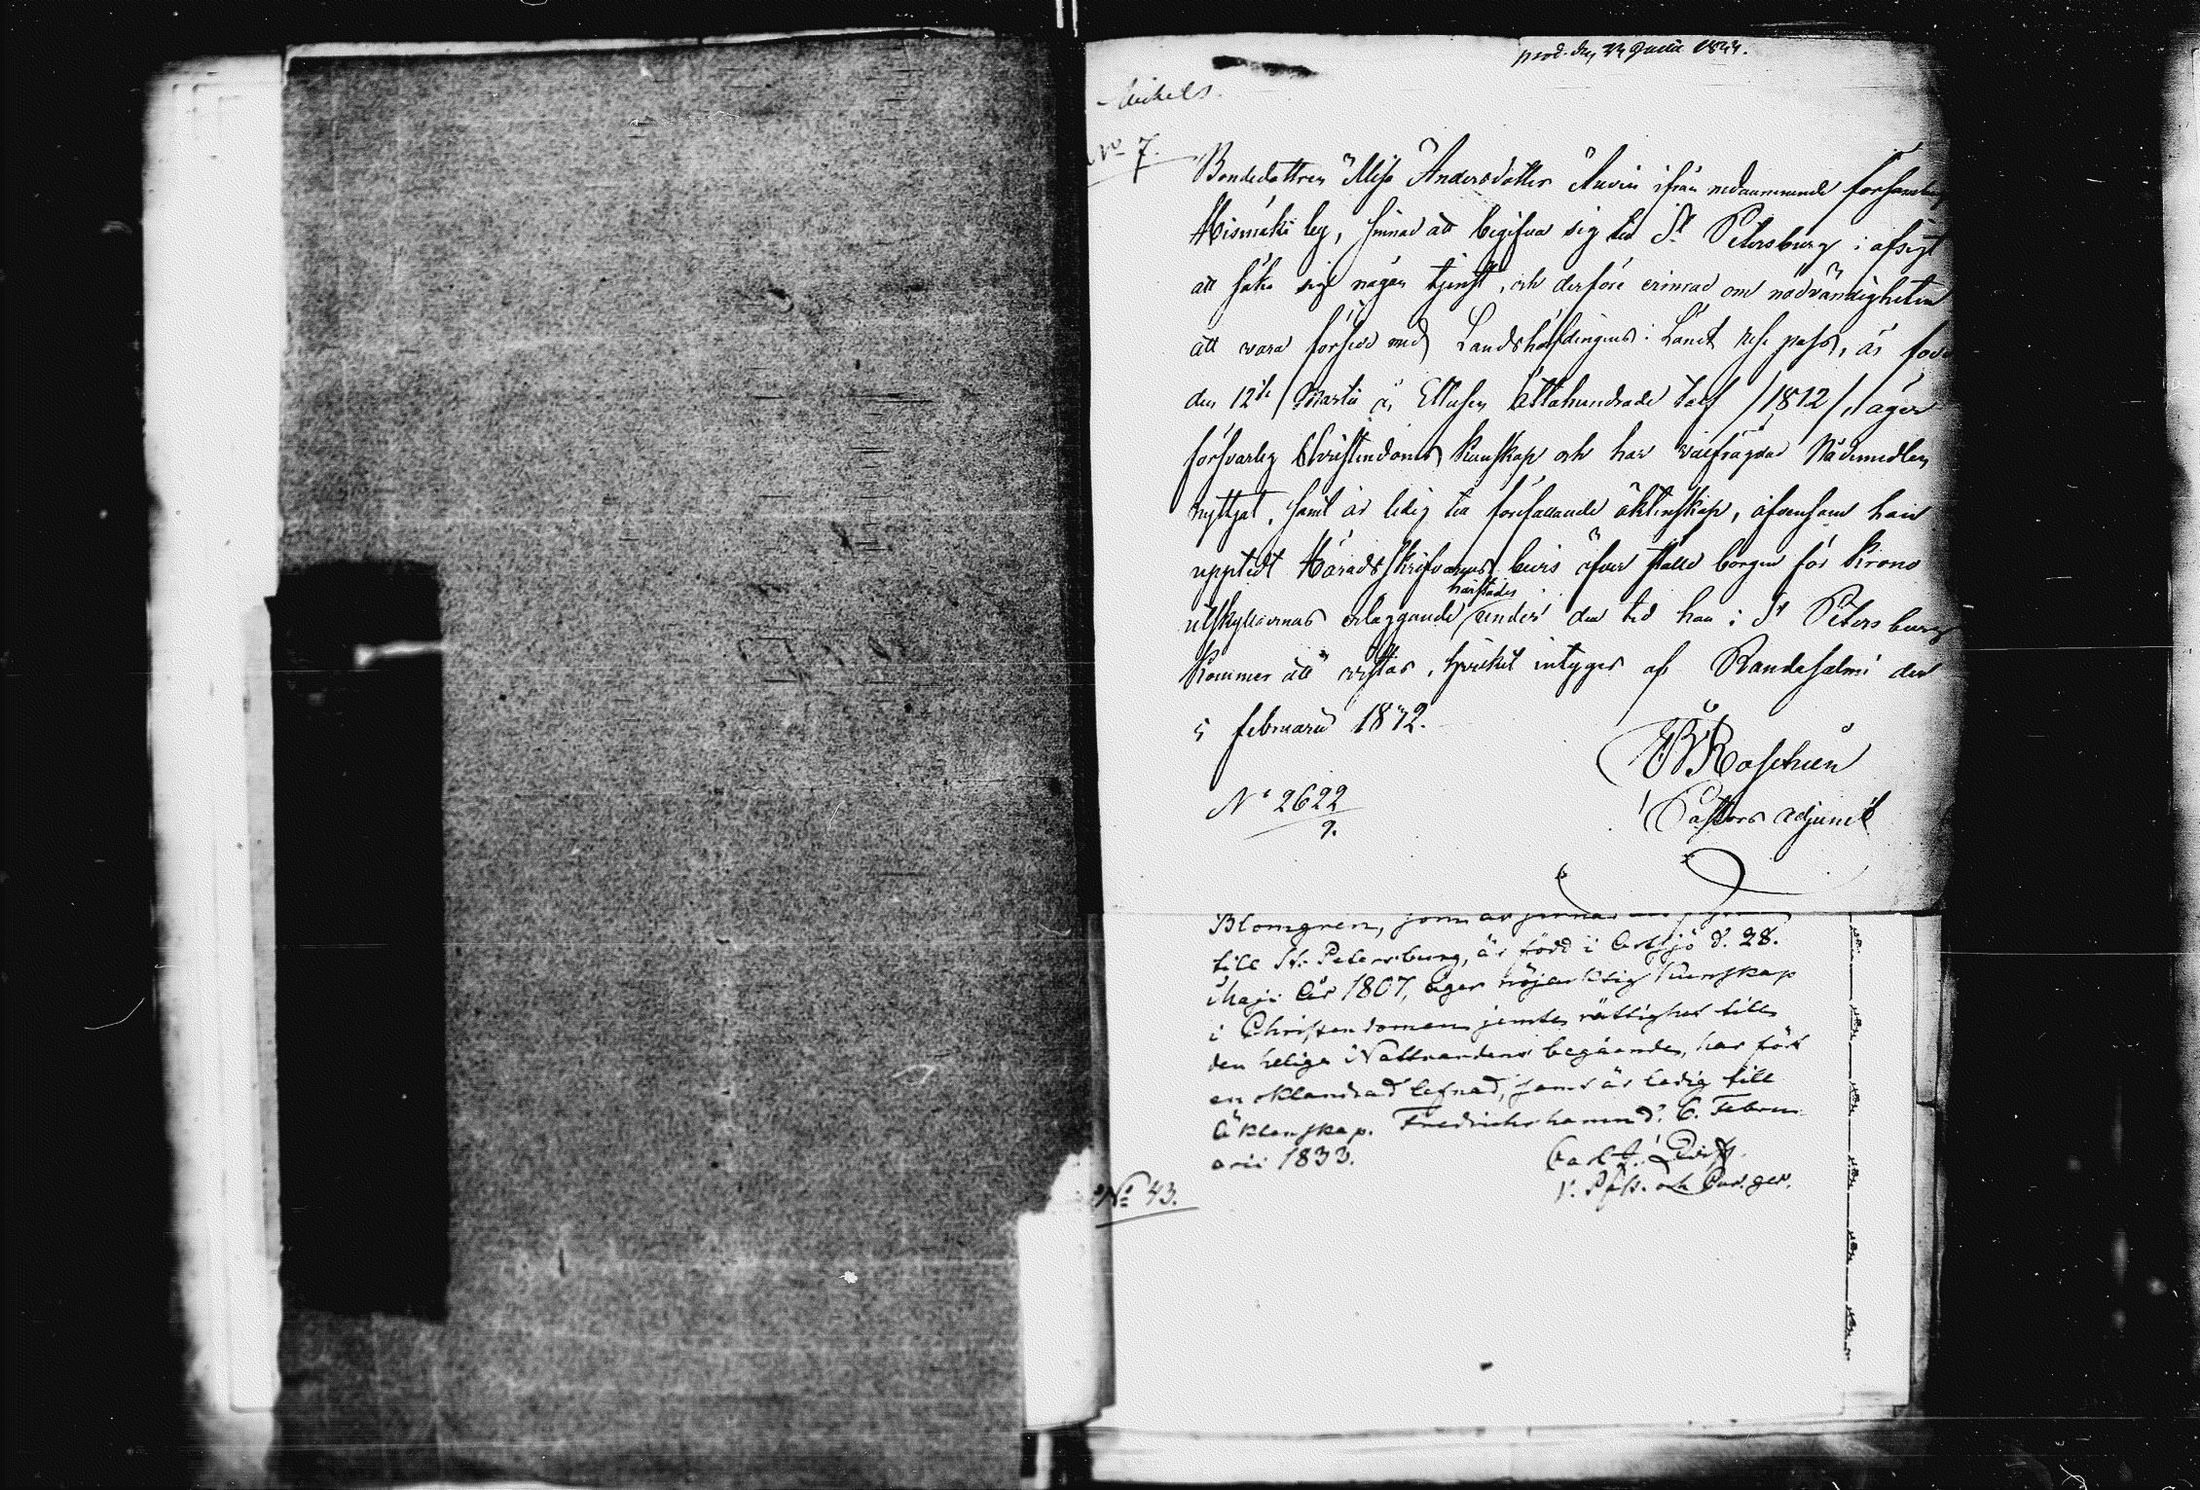 prod. den Junii
Michels
No 7.
Bondedottren Andersdotter ifrån nedannämnde församling
by, sinnad att begifva sig till St Petersburg i afsigt
att söka sig någon tjenst, och derföre erinrad om nödvändigheten
att vara försedd med Landshöfdingens i Länet rese pass, är född
den 12te Martii år Ettusen Åttahundrade tolf /1812/, äger
försvarlig Christendoms kunskap och har välfrägdad Nådemedlen
nyttjat, samt är ledig till förefallande äktenskap, äfvensom hon
upptedt Häradsskrifvarens bevis öfver ställd borgen för Krono
härstädes
utskyldernas erläggande under den tid hon i St Petersburg
kommer att vistas, hvilket intygas af Randasalmi den
5 februarii 1832.
Roschier
Pastors adjunct
No 2622
9.
Blomgren, som är sinnad
till St. Petersburg, är född i d. 28.
Maji år 1807, äger nöjaktig kunskap
i Christendomen jemte rättighet till
den heliga Nattvardens begående, har fört
en oklandrad lefnad, samt är ledig till
Äktenskap. Fredrichshamn d. 6. Febru-
arii 1833.
Carl
v. Past. och
No 43.